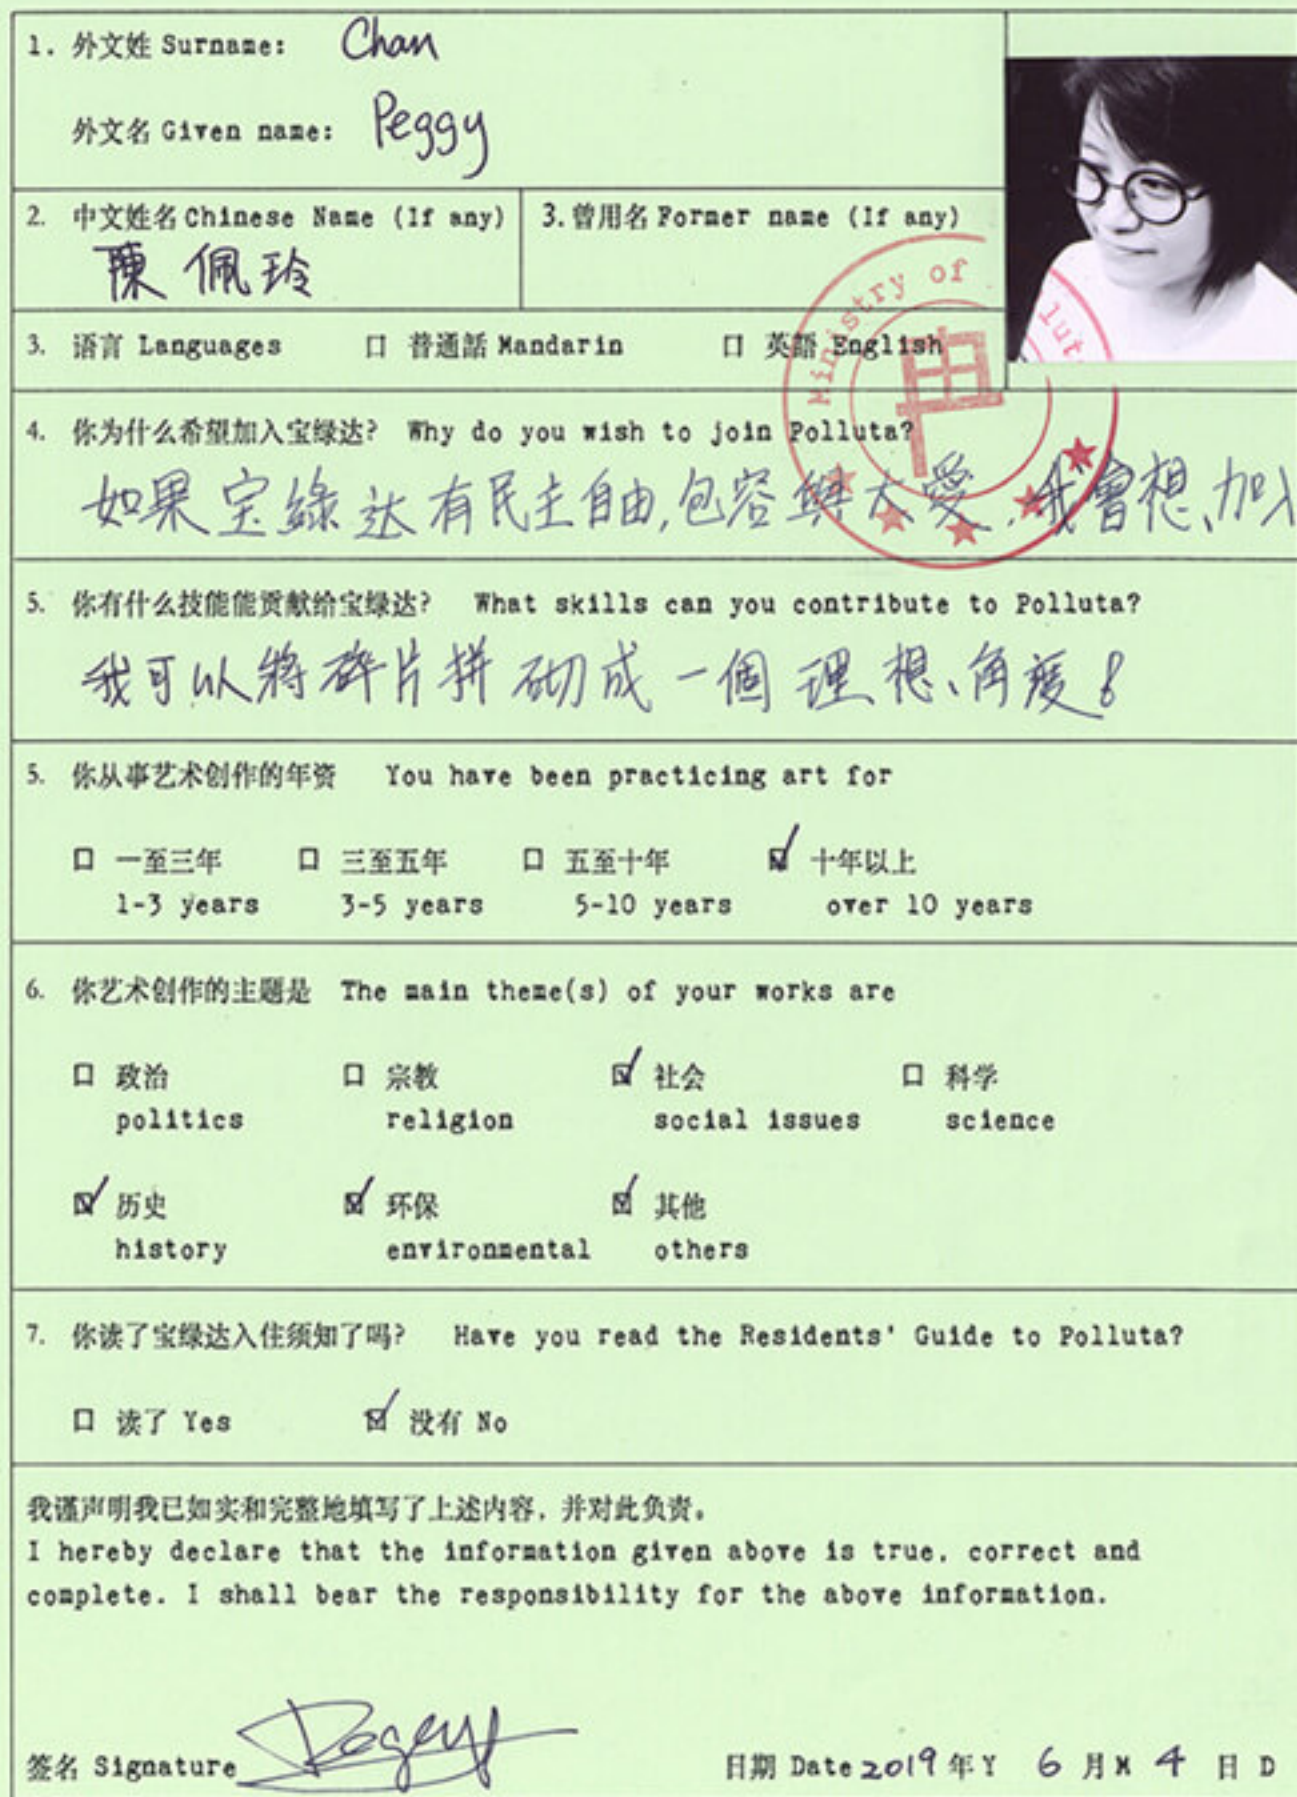 1. 外文姓 Surname: Chan
外文名 Given name: Peggy
2. 中文姓名 Chinese Name (If any)
陳佩玲
3.曾用名 Former name (If any)
3. 语言 Languages 口 普通話 Mandarin 口 英語 English
Ministry of
lut
4. 你为什么希望加入宝绿达? Why do you wish to join Polluta?
如果宝綠达有民主自由,包容與大愛,我會想、加入
5. 你有什么技能能贡献给宝绿达? What skills can you contribute to Polluta?
我可以將碎片拼砌成一個理想、角度!
5. 你从事艺术创作的年资 You have been practicing art for
口 一至三年 口 三至五年 口 五至十年 ☑ 十年以上
1-3 years 3-5 years 5-10 years over 10 years
6. 你艺术创作的主题是 The main theme(s) of your works are
口 政治 口 宗教 ☑ 社会 口 科学
politics religion social issues science
☑ 历史 ☑ 环保 ☑ 其他
history environmental others
7. 你读了宝绿达入住须知了吗? Have you read the Residents' Guide to Polluta?
口 读了 Yes ☑ 没有 No
我谨声明我已如实和完整地填写了上述内容，并对此负责。
I hereby declare that the information given above is true, correct and
complete. I shall bear the responsibility for the above information.
签名 Signature Peggy 日期 Date 2019 年 Y 6 月 M 4 日 D